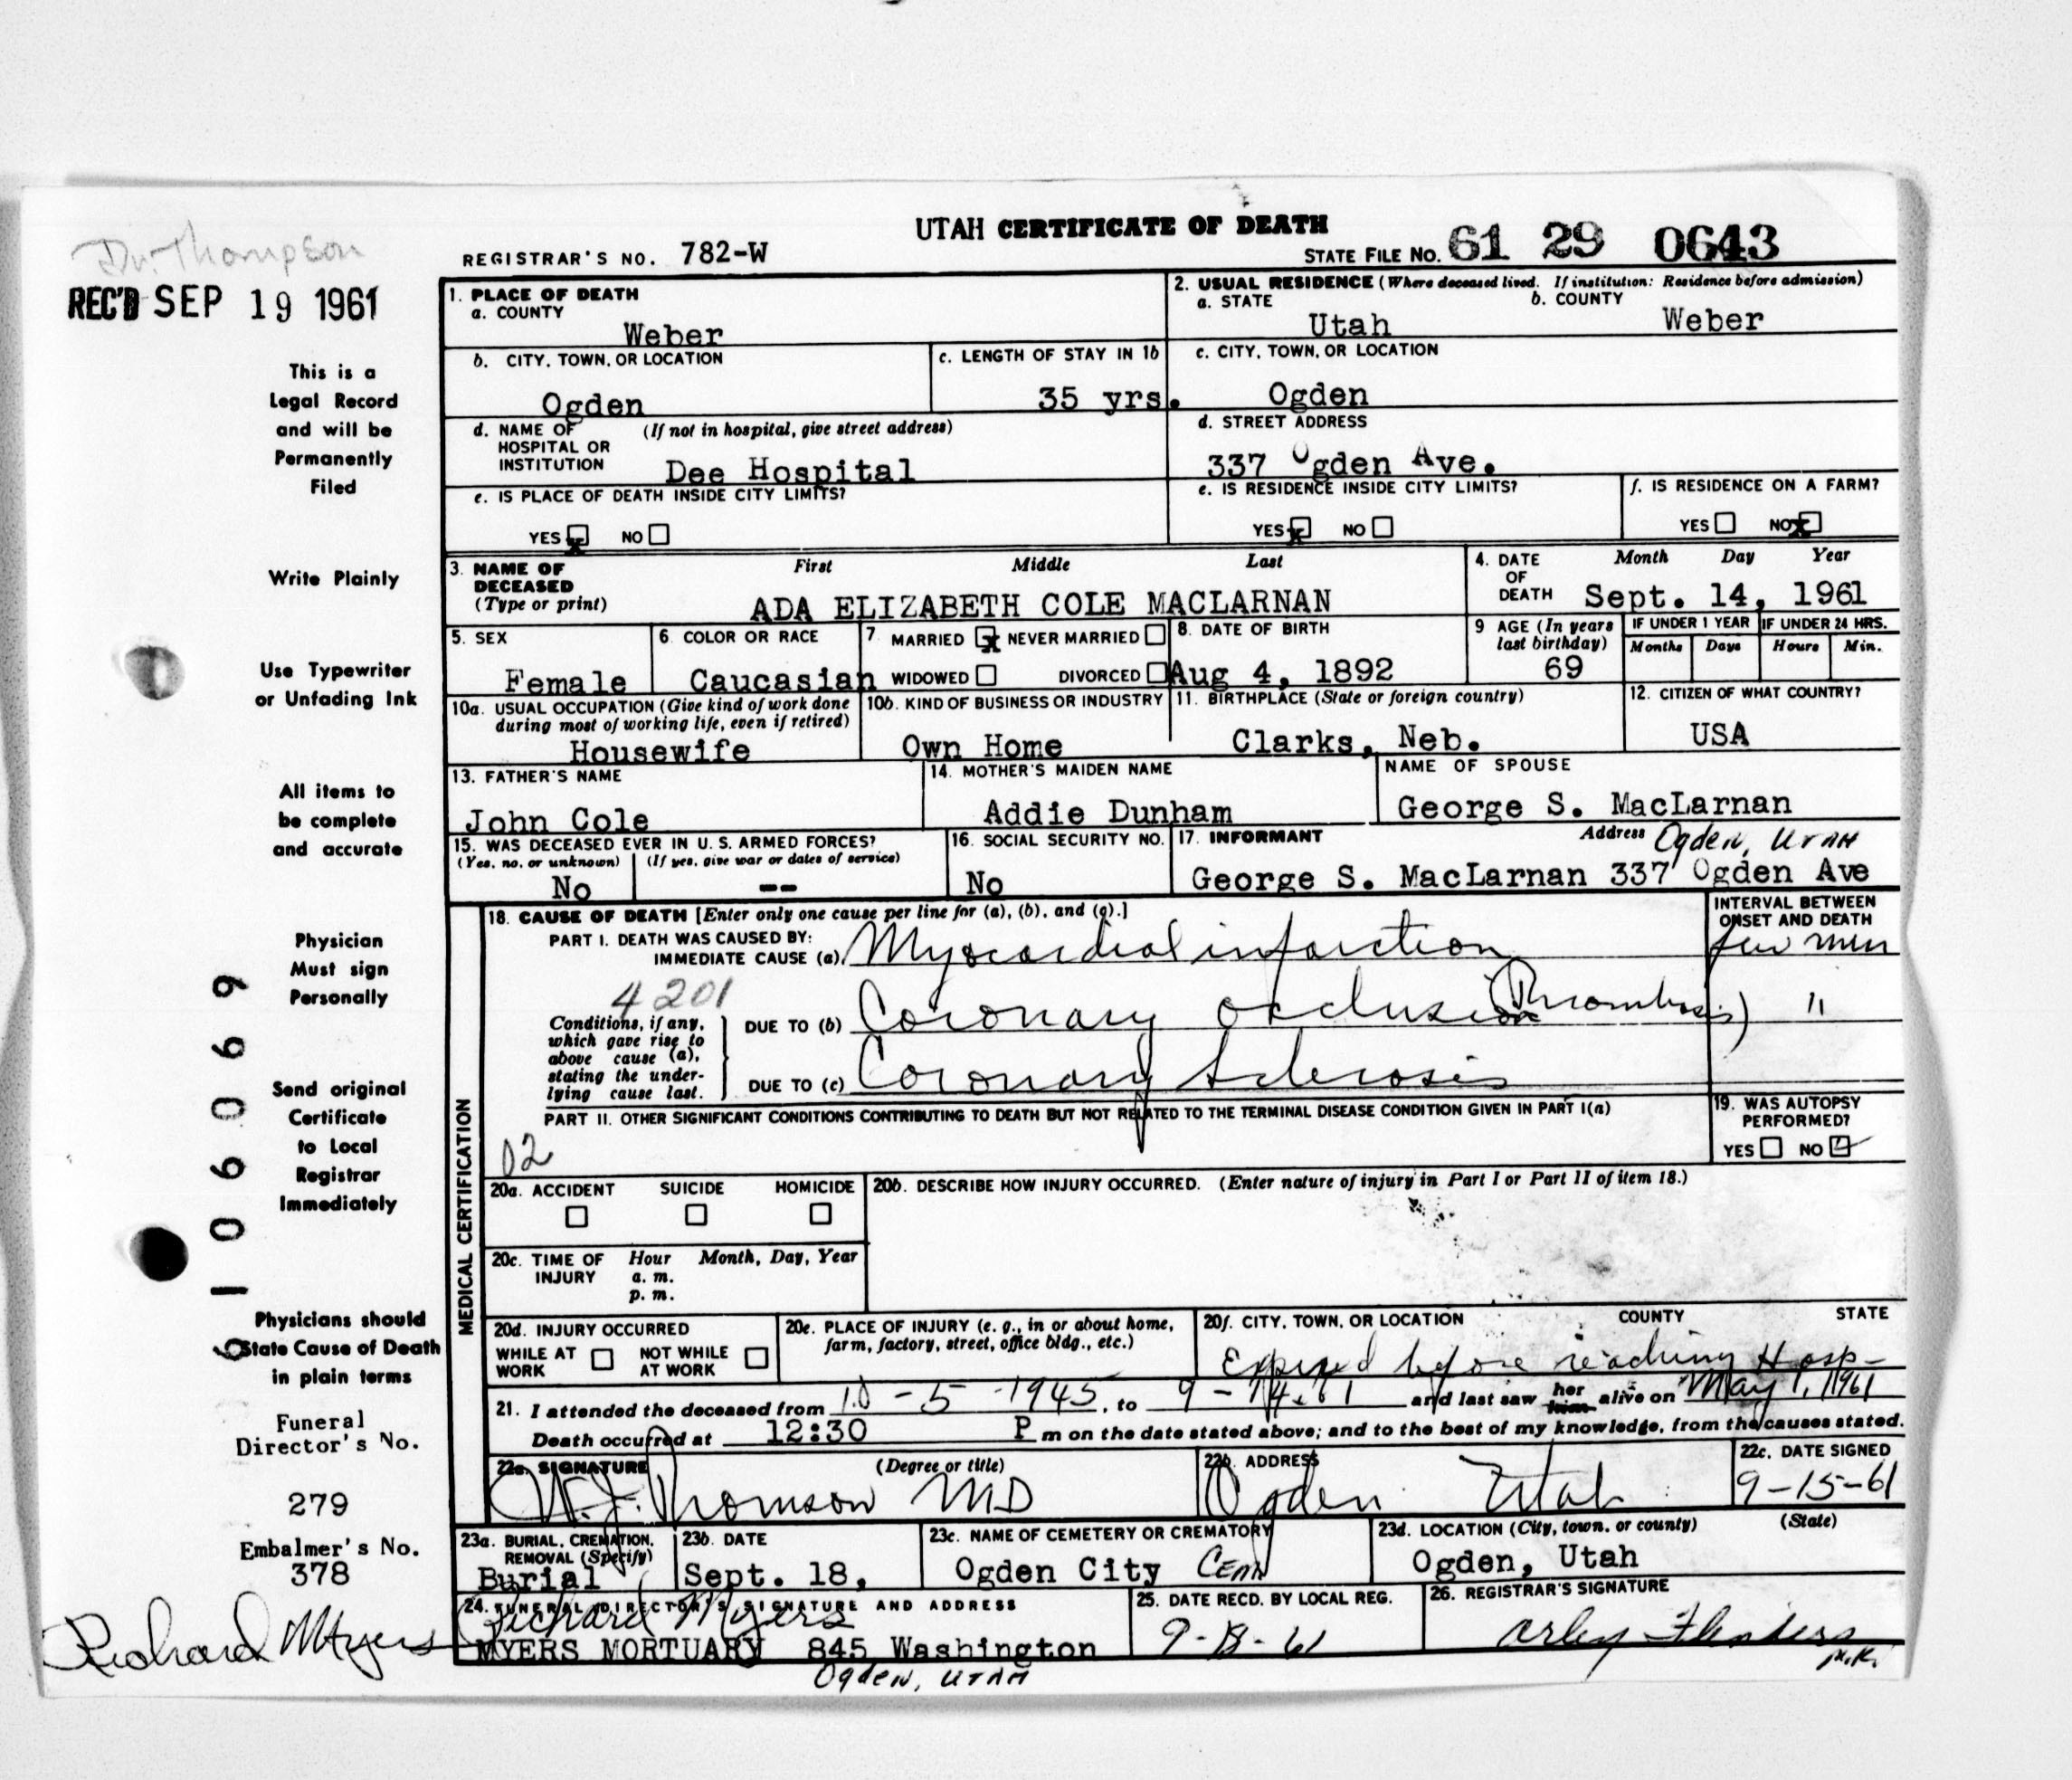 Dr. Thompson
REC'D SEP 19 1961
UTAH CERTIFICATE OF DEATH
REGISTRAR'S NO. 782-W
STATE FILE NO. 61 29 0643
This is a
Legal Record
and will be
Permanently
Filed
Write Plainly
Use Typewriter
or Unfading Ink
All items to
be complete
and accurate
Physician
Must sign
Personally
Send original
Certificate
to Local
Registrar
Immediately
Physicians should
State Cause of Death
in plain terms
Funeral
Director's No.
279
Embalmer's No.
378
Richard Myers
106069
1. PLACE OF DEATH
a. COUNTY
Weber
2. USUAL RESIDENCE (Where deceased lived. If institution: Residence before admission)
a. STATE b. COUNTY
Utah Weber
b. CITY, TOWN, OR LOCATION
Ogden
c. LENGTH OF STAY IN 1b
35 yrs.
c. CITY, TOWN, OR LOCATION
Ogden
d. NAME OF (If not in hospital, give street address)
HOSPITAL OR
INSTITUTION Dee Hospital
d. STREET ADDRESS
337 Ogden Ave.
e. IS PLACE OF DEATH INSIDE CITY LIMITS?
YES x NO
e. IS RESIDENCE INSIDE CITY LIMITS?
YES x NO
f. IS RESIDENCE ON A FARM?
YES NO x
3. NAME OF First Middle Last
DECEASED
(Type or print) ADA ELIZABETH COLE MACLARNAN
4. DATE Month Day Year
OF
DEATH Sept. 14, 1961
5. SEX
Female
6. COLOR OR RACE
Caucasian
7. MARRIED x NEVER MARRIED
WIDOWED DIVORCED
8. DATE OF BIRTH
Aug 4, 1892
9 AGE (In years
last birthday)
69
IF UNDER 1 YEAR
Months Days
IF UNDER 24 HRS.
Hours Min.
10a. USUAL OCCUPATION (Give kind of work done
during most of working life, even if retired)
Housewife
10b. KIND OF BUSINESS OR INDUSTRY
Own Home
11. BIRTHPLACE (State or foreign country)
Clarks, Neb.
12. CITIZEN OF WHAT COUNTRY?
USA
13. FATHER'S NAME
John Cole
14. MOTHER'S MAIDEN NAME
Addie Dunham
NAME OF SPOUSE
George S. MacLarnan
15. WAS DECEASED EVER IN U. S. ARMED FORCES?
(Yes, no, or unknown) (If yes, give war or dates of service)
No --
16. SOCIAL SECURITY NO.
No
17. INFORMANT Address Ogden, UTAH
George S. MacLarnan 337 Ogden Ave
MEDICAL CERTIFICATION
18. CAUSE OF DEATH [Enter only one cause per line for (a), (b), and (c).]
PART I. DEATH WAS CAUSED BY:
IMMEDIATE CAUSE (a) Myocardial infarction
INTERVAL BETWEEN
ONSET AND DEATH
few min
4201
Conditions, if any,
which gave rise to
above cause (a),
stating the under-
lying cause last.
DUE TO (b) Coronary occlusion (Thrombosis) "
DUE TO (c) Coronary Sclerosis
PART II. OTHER SIGNIFICANT CONDITIONS CONTRIBUTING TO DEATH BUT NOT RELATED TO THE TERMINAL DISEASE CONDITION GIVEN IN PART I(a)
02
19. WAS AUTOPSY
PERFORMED?
YES NO ✓
20a. ACCIDENT SUICIDE HOMICIDE
20b. DESCRIBE HOW INJURY OCCURRED. (Enter nature of injury in Part I or Part II of item 18.)
20c. TIME OF Hour Month, Day, Year
INJURY a. m.
p. m.
20d. INJURY OCCURRED
WHILE AT NOT WHILE
WORK AT WORK
20e. PLACE OF INJURY (e. g., in or about home,
farm, factory, street, office bldg., etc.)
20f. CITY, TOWN, OR LOCATION COUNTY STATE
Expired before reaching Hosp-
21. I attended the deceased from 10-5-1945, to 9-14-61 and last saw her him alive on May 1, 1961
Death occurred at 12:30 P m on the date stated above; and to the best of my knowledge, from the causes stated.
22a. SIGNATURE (Degree or title)
W. J. Thomson MD
22b. ADDRESS
Ogden Utah
22c. DATE SIGNED
9-15-61
23a. BURIAL, CREMATION,
REMOVAL (Specify)
Burial
23b. DATE
Sept. 18,
23c. NAME OF CEMETERY OR CREMATORY
Ogden City Cem
23d. LOCATION (City, town, or county) (State)
Ogden, Utah
24. FUNERAL DIRECTOR'S SIGNATURE AND ADDRESS
Richard Myers
MYERS MORTUARY 845 Washington
Ogden, UTAH
25. DATE RECD. BY LOCAL REG.
9-18-61
26. REGISTRAR'S SIGNATURE
Arley Flinders